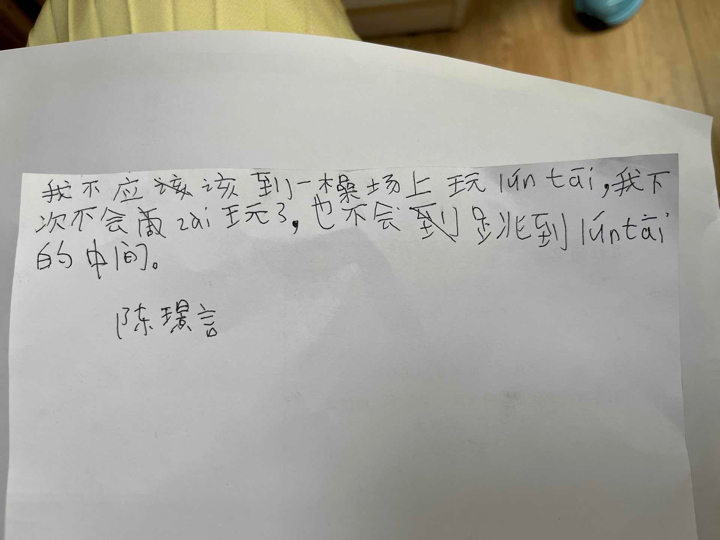 我不应该到操场上玩lún tāi,我下
次不会zài玩了,也不会跳到lúntāi
的中间。
陈璟言